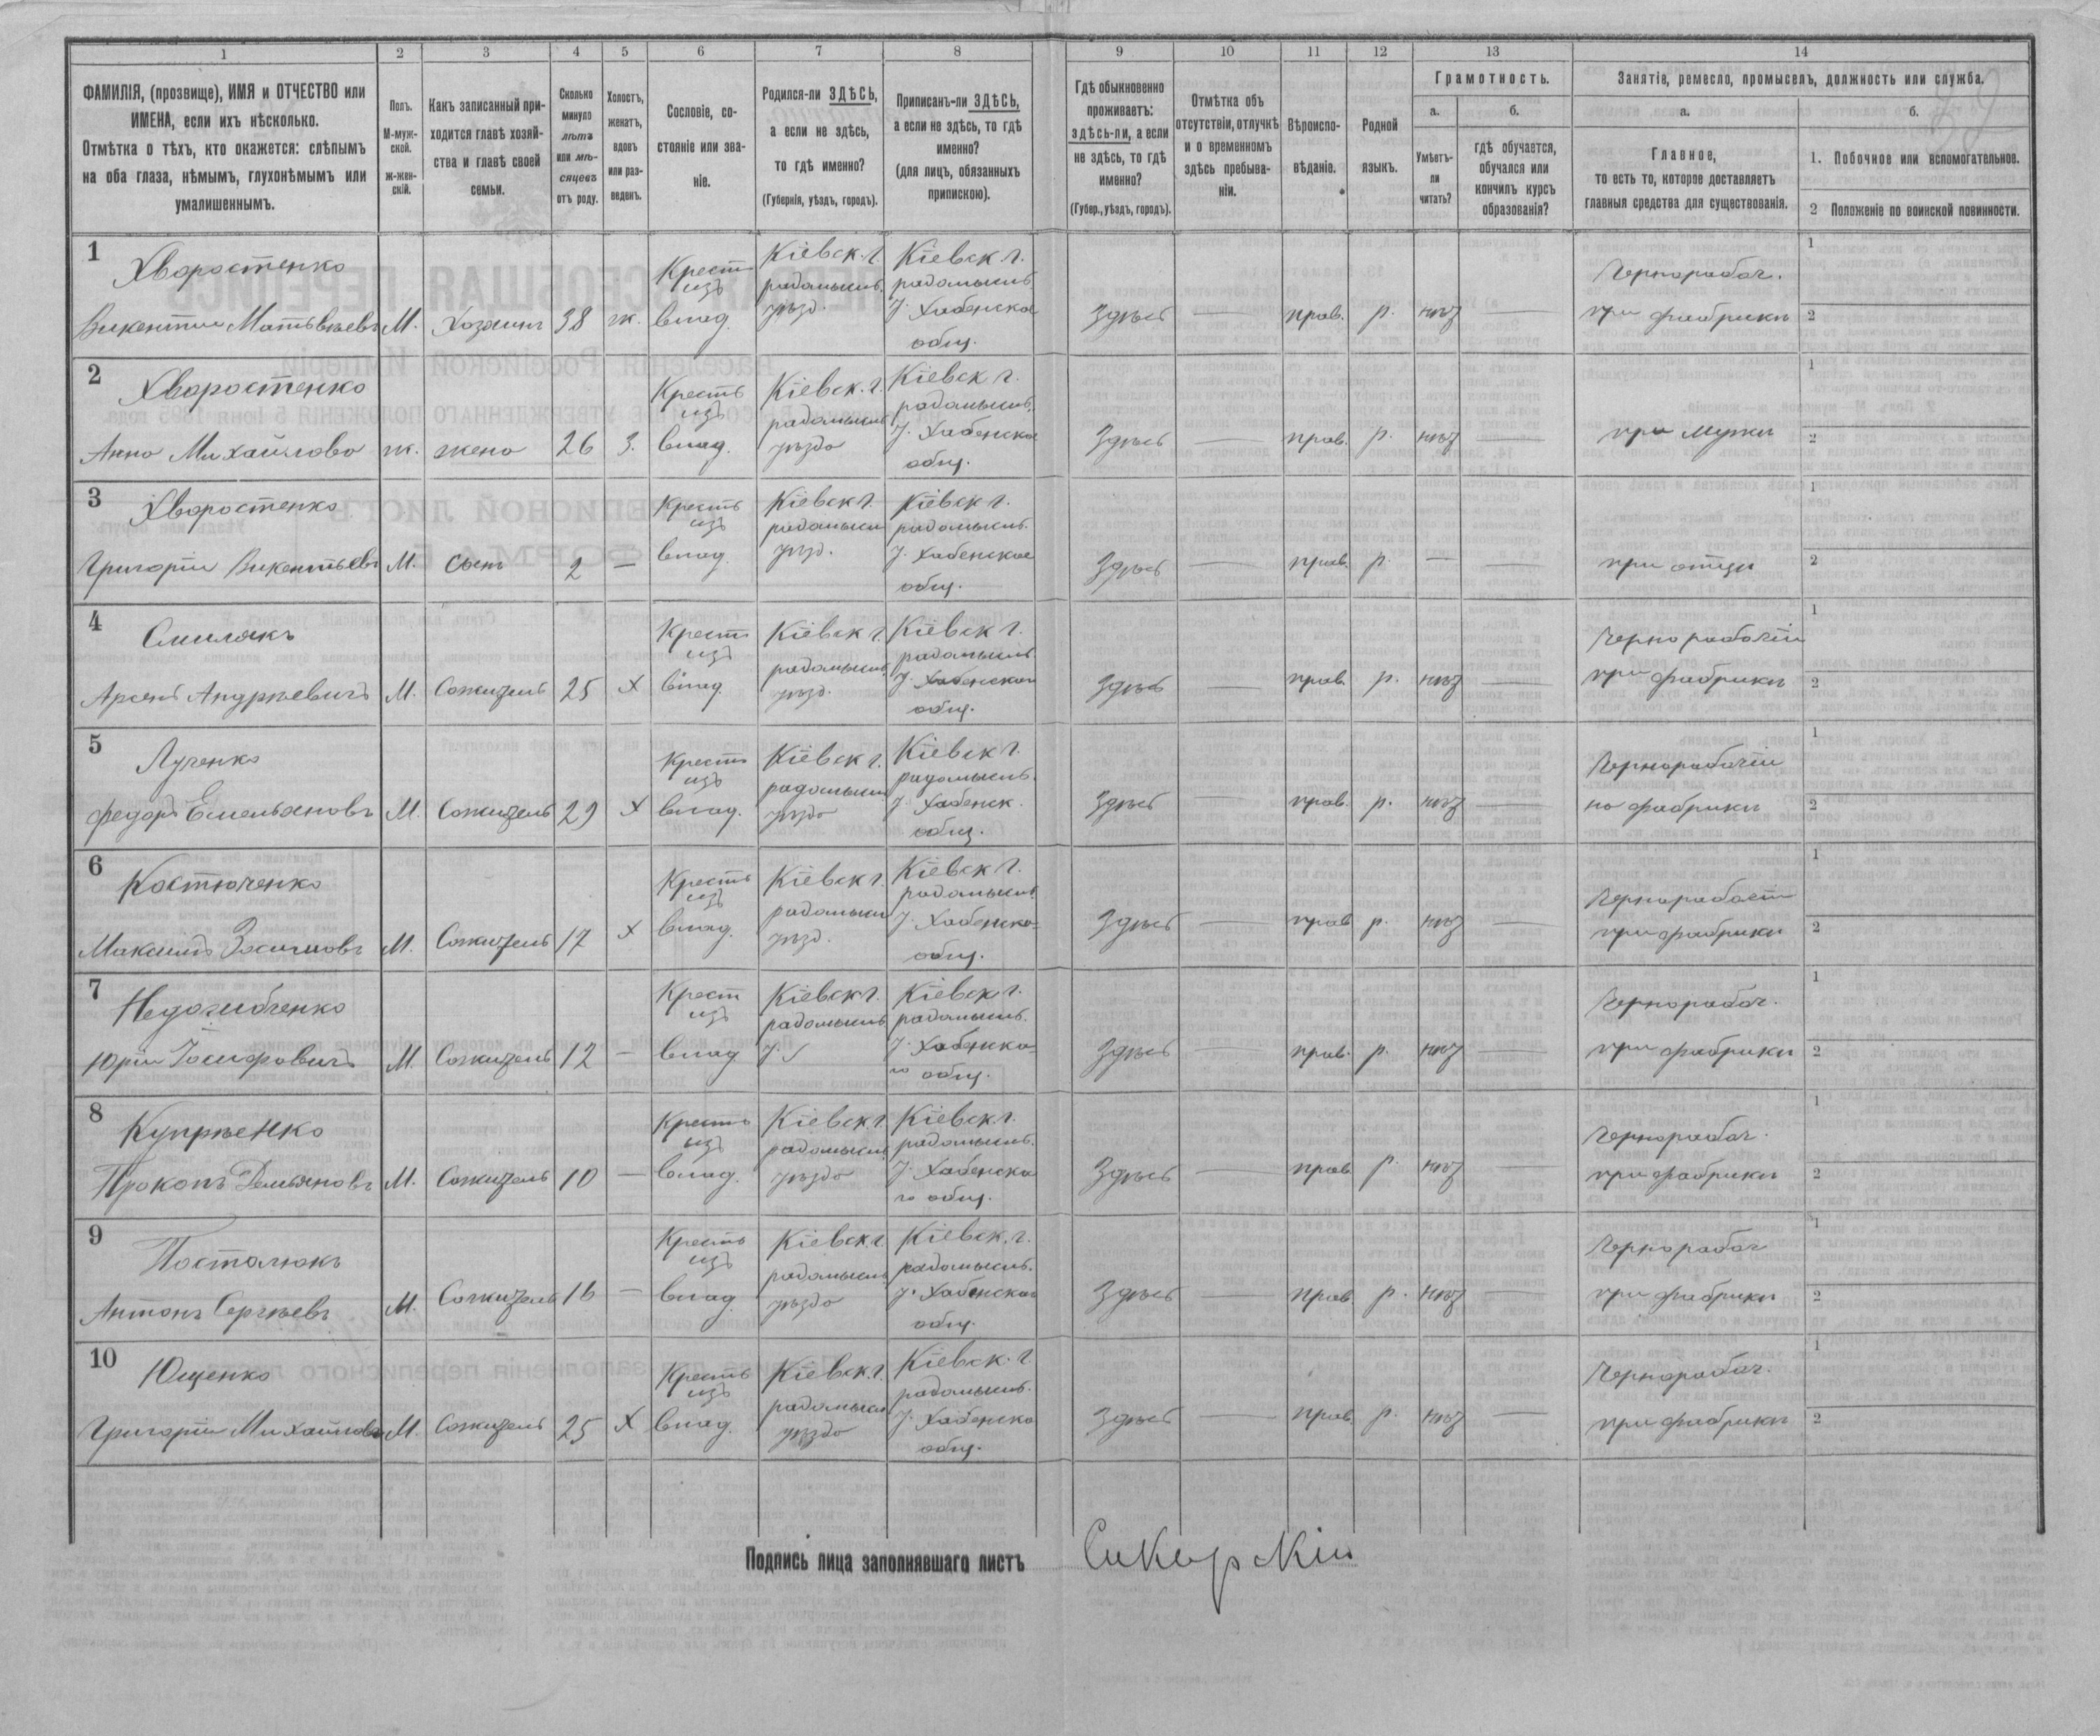 1 2 3 4 5 6 7 8 9 10 11 12 13 14
ФАМИЛІЯ, (прозвище), ИМЯ и ОТЧЕСТВО или
ИМЕНА, если ихъ нѣсколько.
Отмѣтка о тѣхъ, кто окажется: слѣпымъ
на оба глаза, нѣмымъ, глухонѣмымъ или
умалишеннымъ.
Полъ.
М-муж-
ской.
ж-жен-
скій.
Какъ записанный при-
ходится главѣ хозяй-
ства и главѣ своей
семьи.
Сколько
минуло
лѣтъ
или мѣ-
сяцевъ
отъ роду.
Холостъ,
женатъ,
вдовъ
или раз-
веденъ.
Сословіе, со-
стояніе или зва-
ніе.
Родился-ли ЗДѢСЬ,
а если не здѣсь,
то гдѣ именно?
(Губернія, уѣздъ, городъ).
Приписанъ-ли ЗДѢСЬ,
а если не здѣсь, то гдѣ
именно?
(для лицъ, обязанныхъ
припискою).
Гдѣ обыкновенно
проживаетъ:
здѣсь-ли, а если
не здѣсь, то гдѣ
именно?
(Губер., уѣздъ, городъ).
Отмѣтка объ
отсутствіи, отлучкѣ
и о временномъ
здѣсь пребыва-
ніи.
Вѣроиспо-
вѣданіе.
Родной
языкъ.
Грамотность.
а.
Умѣетъ-
ли
читать?
б.
гдѣ обучается,
обучался или
кончилъ курсъ
образованія?
Занятіе, ремесло, промыселъ, должность или служба.
а.
Главное,
то есть то, которое доставляетъ
главныя средства для существованія.
б.
1. Побочное или вспомогательное.
2 Положеніе по воинской повинности.
1
Хворостенко
Викентии Матвѣевъ М. Хозяинъ 38 ж.
Крест
изъ
влад.
Кіевск. г.
радомысл.
уѣзд.
Кіевск г.
радомысл.
у. Хабенское
общ.
Здѣсь — прав. р. нѣт —
Чернорабоч.
при фабрики
1
2
2
Хворостенко
Анна Михайлова ж. жена 26 З.
Кресть
изъ
влад.
Кіевск. г.
радомысл
уѣзда
Кіевск г.
радомысл.
у. Хабенское
общ.
Здѣсь — прав. р. нѣт —
при мужи
1
2
3
Хворостенко
Григоріи Викентьевъ М. Сынъ 2 —
Кресть
изъ
влад.
Кіевск г.
радомысл
уѣзд.
Кіевск г.
радомысл.
у. Хабенское
общ.
Здѣсь — прав. р. — —
при отци
1
2
4
Смилякъ
Арсенъ Андрѣевичъ М. Сожитель 25 Х
Крест
изъ
влад.
Кіевск г.
радомысл.
уѣзд.
Кіевск г.
радомысл.
у. Хабенское
общ.
Здѣсь — прав. р. нѣт —
Чернорабочіи
при фабрики
1
2
5
Лученко
Федоръ Емельяновъ М. Сожитель 29 Х
Крест
изъ
влад.
Кіевск г.
радомысл
уѣзда
Кіевск г.
радомысл.
у. Хабенск.
общ.
Здѣсь — прав. р. нѣт —
Чернорабочіи
на фабрики
1
2
6
Костюченко
Максимъ М. Сожитель 17 Х
Кресть
изъ
влад.
Кіевск г.
радомысл
уѣзд.
Кіевск г.
радомысл.
у. Хабенско-
общ.
Здѣсь — прав р. нѣт —
при фабрики
1
2
7
Юріи Іосифовичъ М. Сожитель 12 —
Крест
изъ
влад
Кіевск г.
радомысл
у.
Кіевск г.
радомысл.
у. Хабенско-
го общ.
Здѣсь — прав. р. нѣт —
Чернорабоч.
при фабрики
1
2
8
Купрѣенко
Прокопъ Демьяновъ М. Сожитель 10 —
Кресть
изъ
влад.
Кіевск г.
радомысл
уѣзда
Кіевск г.
радомысл.
у. Хабенско
го общ.
Здѣсь — прав р. нѣт —
Чернорабоч.
при фабрики
1
2
9
Постолюкъ
Антонъ Сергѣевъ М. Сожитель 16 —
Кресть
изъ
влад
Кіевск. г.
радомысл
уѣзда
Кіевск. г.
радомысл.
у. Хабенское
общ.
Здѣсь — прав р. нѣт —
Чернорабоч
при фабрики
1
2
10
Ющенко
Григоріи Михайловъ М. Сожитель 25 Х
Кресть
изъ
влад.
Кіевск. г.
радомысл
уѣзда
Кіевск. г.
радомысл.
у. Хабенско
общ.
Здѣсь — прав. р. нѣт —
Чернорабоч.
при фабрики
1
2
Подпись лица заполнявшаго листъ Сикорскіи